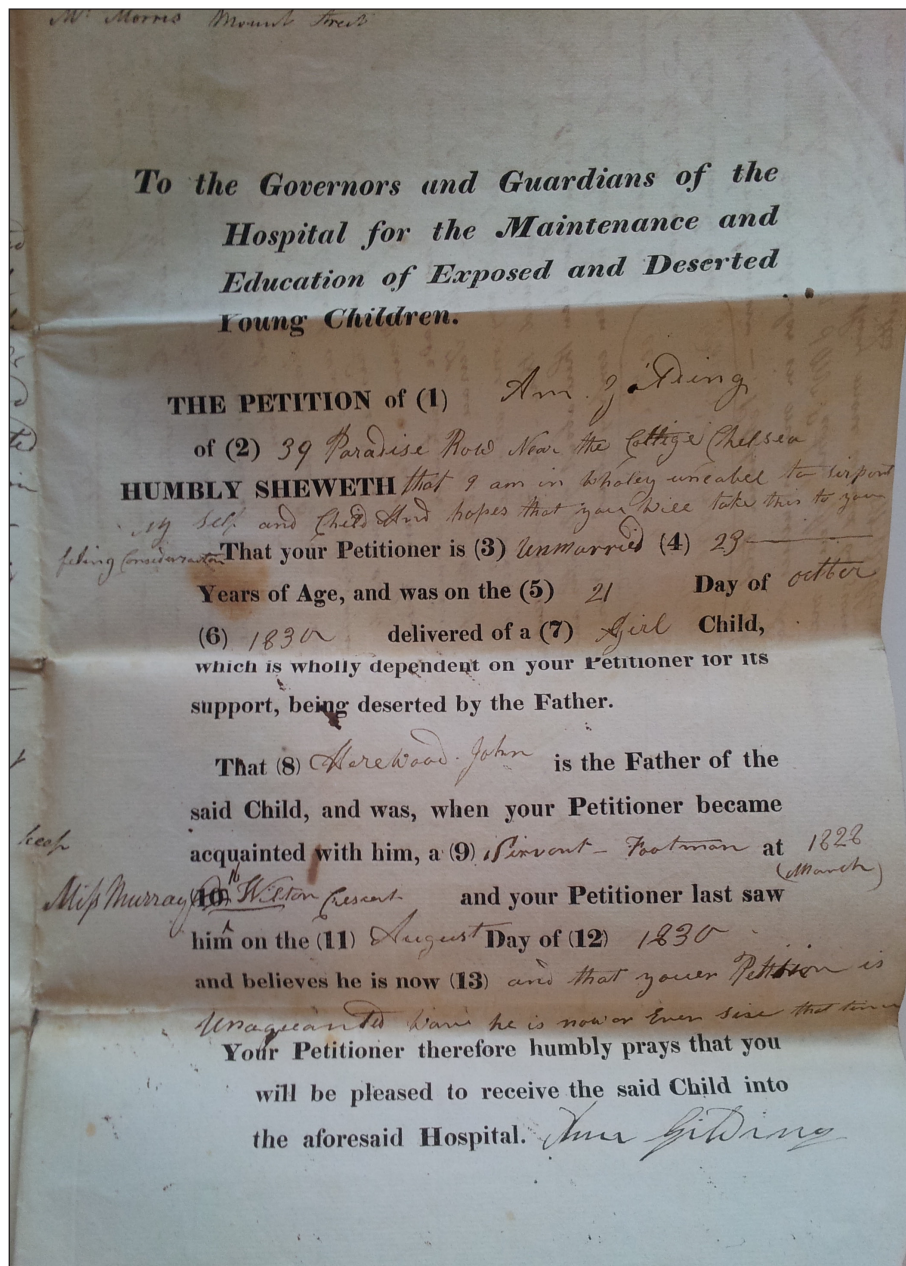 Mr Morris Mount Street
To the Governors and Guardians of the
Hospital for the Maintenance and
Education of Exposed and Deserted
Young Children.
THE PETITION of (1) Ann Gilding
of (2) 39 Paradise Row Near the Collige Chelsea
HUMBLY SHEWETH that I am in wholey uneabel to
My Self and Child And hopes that you will take this to your
feling Consideration That your Petitioner is (3) Unmarried (4) 23
Years of Age, and was on the (5) 21 Day of octber
(6) 1830 delivered of a (7) Girl Child,
which is wholly dependent on your Petitioner for its
support, being deserted by the Father.
That (8) Harewood John is the Father of the
said Child, and was, when your Petitioner became
acquainted with him, a (9) Servent - Footman at 1828
(March)
Miss Murray (10) 16 Wilton Crescent and your Petitioner last saw
him on the (11) August Day of (12) 1830
and believes he is now (13) and that youer Petition is
Unaqueanted he is now or Ever sise that time
Your Petitioner therefore humbly prays that you
will be pleased to receive the said Child into
the aforesaid Hospital. Ann Gilding